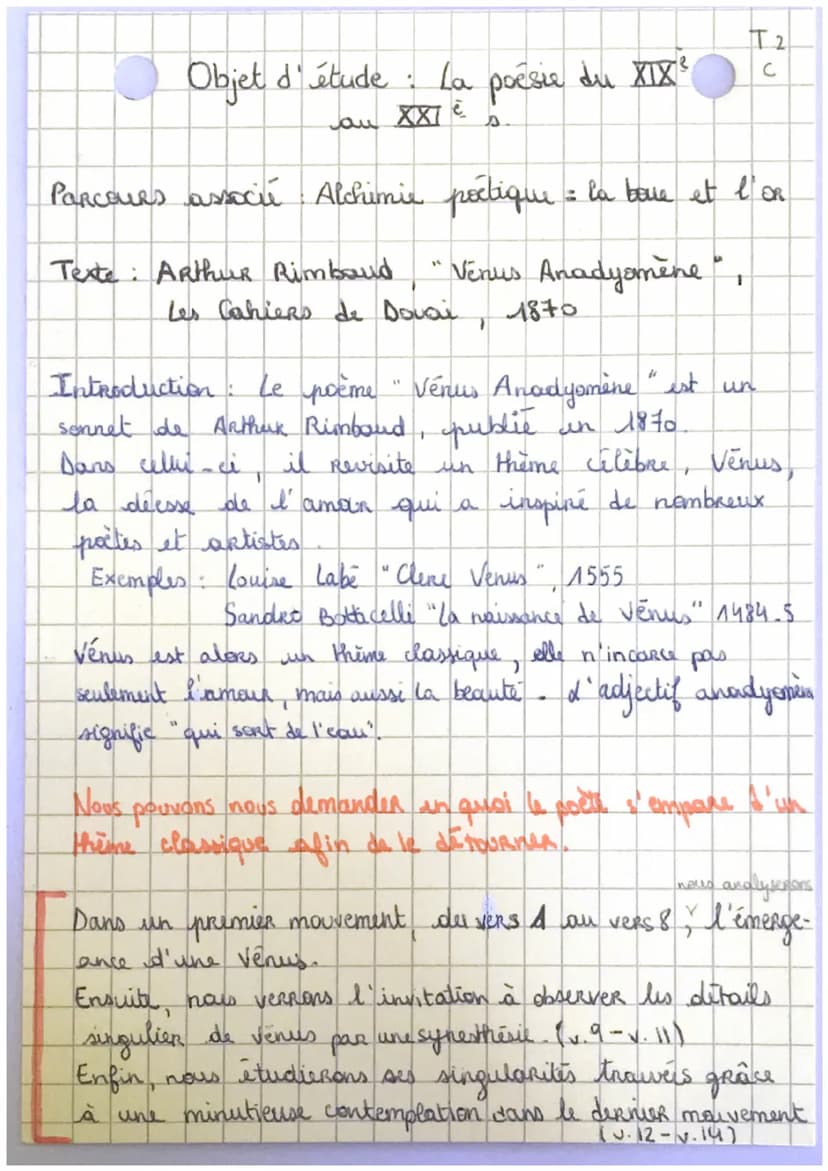 T2
C
Objet d'étude : La poésie du XIXè
au XXIè s.
Parcours associé : Alchimie poétique = la boue et l'or
Texte : Arthur Rimbaud, "Vénus Anadyomène",
Les Cahiers de Douai, 1870
Introduction : Le poème "Vénus Anadyomène" est un
sonnet de Arthur Rimbaud, publié en 1870.
Dans celui-ci, il revisite un thème célèbre, Vénus,
la déesse de l'amour qui a inspiré de nombreux
poètes et artistes.
Exemples : Louise Labé "Clere Venus", 1555
Sandro Botticelli "La naissance de Vénus" 1484-5
Vénus est alors un thème classique, elle n'incarne pas
seulement l'amour, mais aussi la beauté. L'adjectif anadyomène
signifie "qui sort de l'eau".
Nous pouvons nous demander en quoi le poète s'empare d'un
thème classique afin de le détourner.
nous analyserons
Dans un premier mouvement, du vers 1 au vers 8, l'émerge-
ance d'une Vénus.
Ensuite, nous verrons l'invitation à observer les détails
singulier de Vénus par une synesthésie. (v.9-v.11)
Enfin, nous étudierons ses singularités trouvés grâce
à une minutieuse contemplation dans le dernier mouvement
(v.12-v.14)